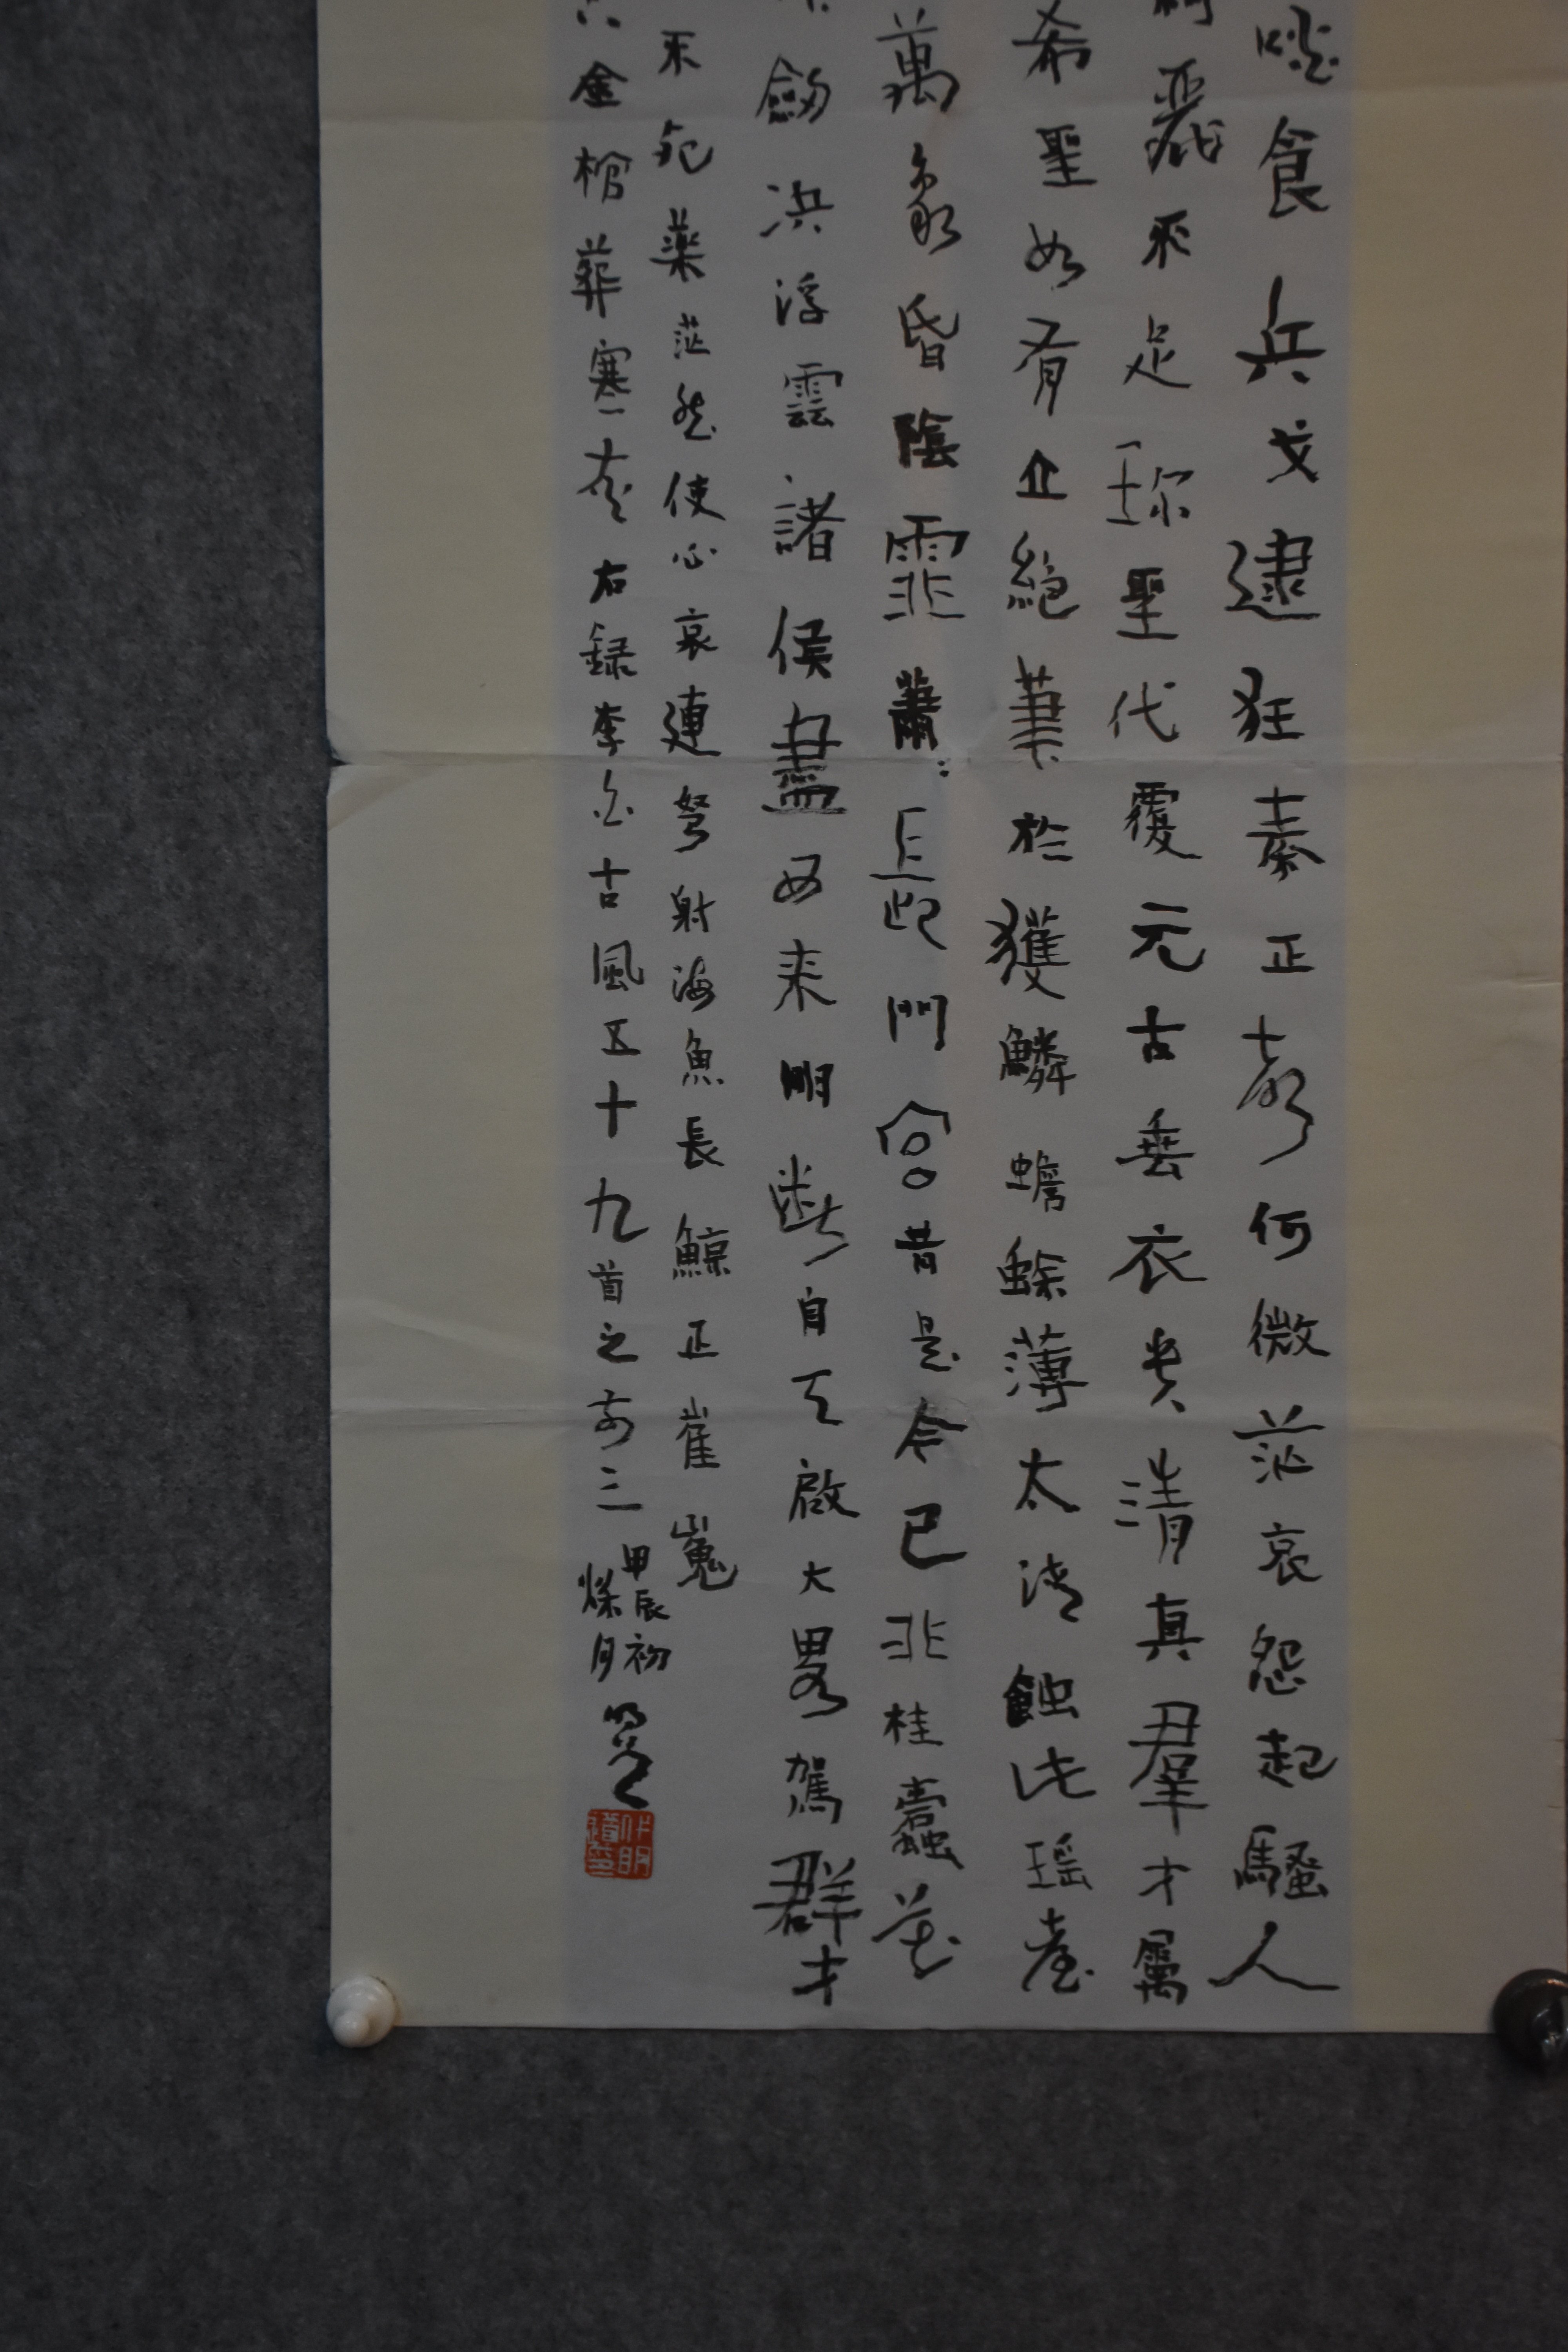 啖食兵戈逮狂秦正聲何微茫哀怨起騷人
麗不足珎聖代覆元古垂衣貴清真羣才屬
希聖如有立絕筆於獲麟蟾蜍薄太清蝕此瑶臺
萬象昏陰霏蕭:長門宫昔是今已非桂蠹花
劒決浮雲諸侯盡西来明断自天啟大畧駕群才
不死藥茫然使心哀連弩射海魚長鯨正崔嵬
金棺葬寒灰右録李白古風五十九首之前三
甲辰初